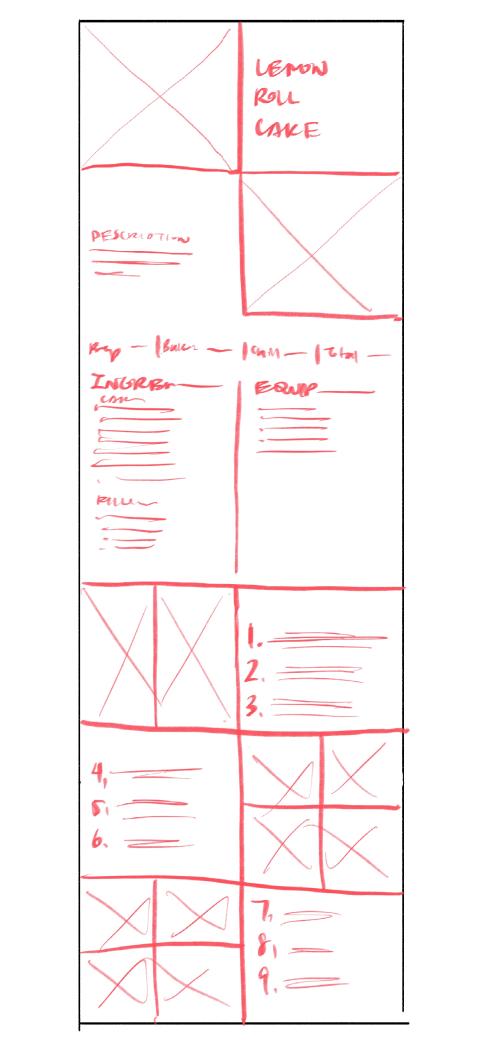 LEMON
ROLL
CAKE
DESCRIPTION
Prep | Bake | Chill | Total
INGRE EQUIP
CAKE
FILL
1.
2.
3.
4.
5.
6.
7.
8.
9.